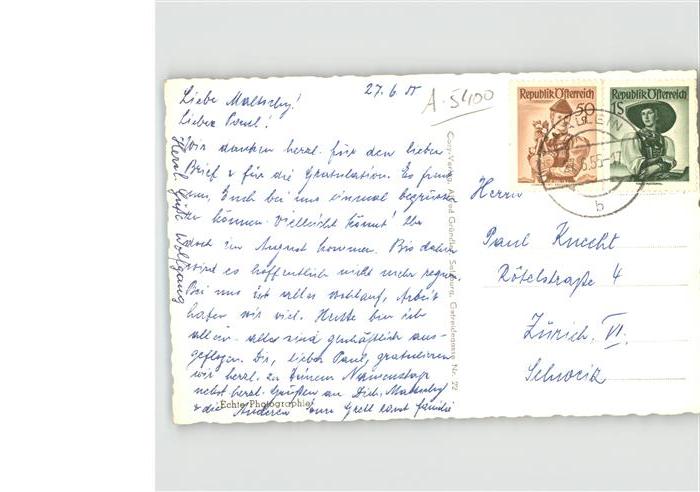 27. 6. 55
A. 5400
Liebe Maltschy!
Lieber Paul!
Wir danken herzl. für den lieben
Brief & für die Gratulation. Es freut
uns, Euch bei uns einmal begrüssen
zu können. Vielleicht könnt Ihr
doch im August kommen. Bis dahin
wird es hoffentlich nicht mehr regnen.
Bei uns ist alles wohlauf, Arbeit
haben wir viel. Heute bin ich
allein. alle sind geschäftlich aus-
geflogen. Dir, lieber Paul, gratulieren
wir herzl. zu Deinem Namenstag
nebst herzl. Grüßen an Dich, Maltschy
& die Anderen von Gretl samt Familie
Herzl. Grüße Wolfgang
Echte Photographie
Alfred Gründler, Salzburg, Getreidegasse Nr. 22
Republik Österreich
50
Republik Österreich
1S
HALLEIN
b
Herrn
Paul Knecht
Rötelstraße 4
Zürich VI.
Schweiz